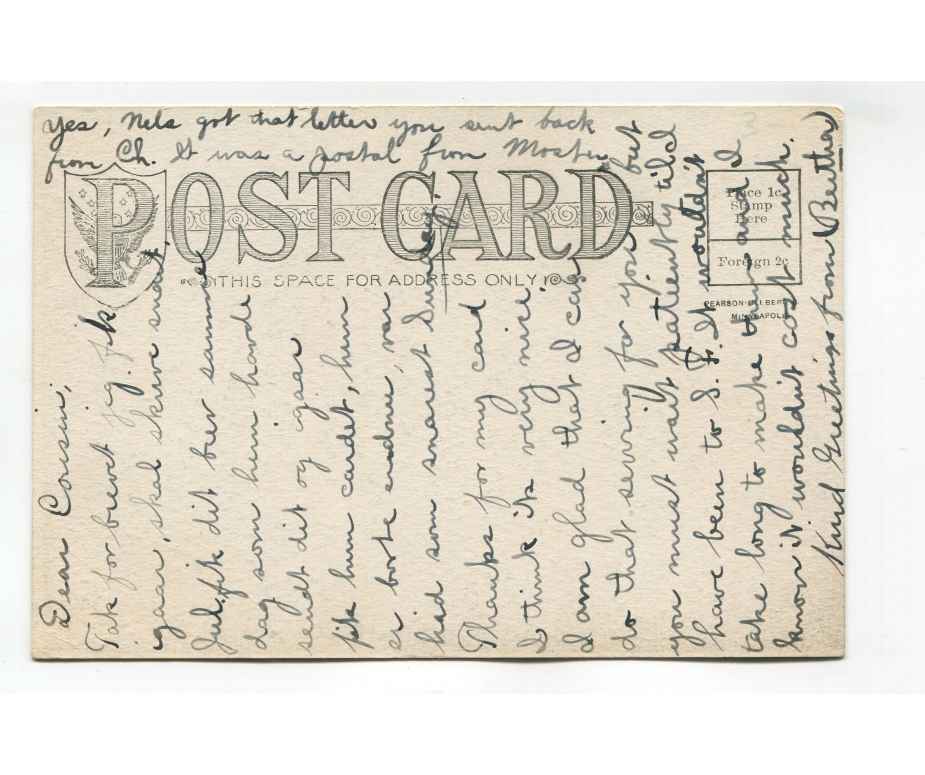 Yes, Nels got that letter you sent back
from Ch. It was a postal from Moster
POST CARD
THIS SPACE FOR ADDRESS ONLY
Place 1c
Stamp
Here
Foreign 2c
MINNEAPOLIS
Dear Cousin,
Tak for brevet jeg fik
igaar, skal skrive snart,
Jul. fik dit brev samme
dag som hun havde
sendt dit og igaar
fik hun cardet, hun
er borte endnu, var
hid som snarest Sunday.
Thanks for my card
I think it's very nice.
I am glad that I can
do that sewing for you but
you must wait patiently till I
have been to S. F. It wouldn't
take long to make them and I
know it wouldn't cost much.
Kind Greetings from Bertha